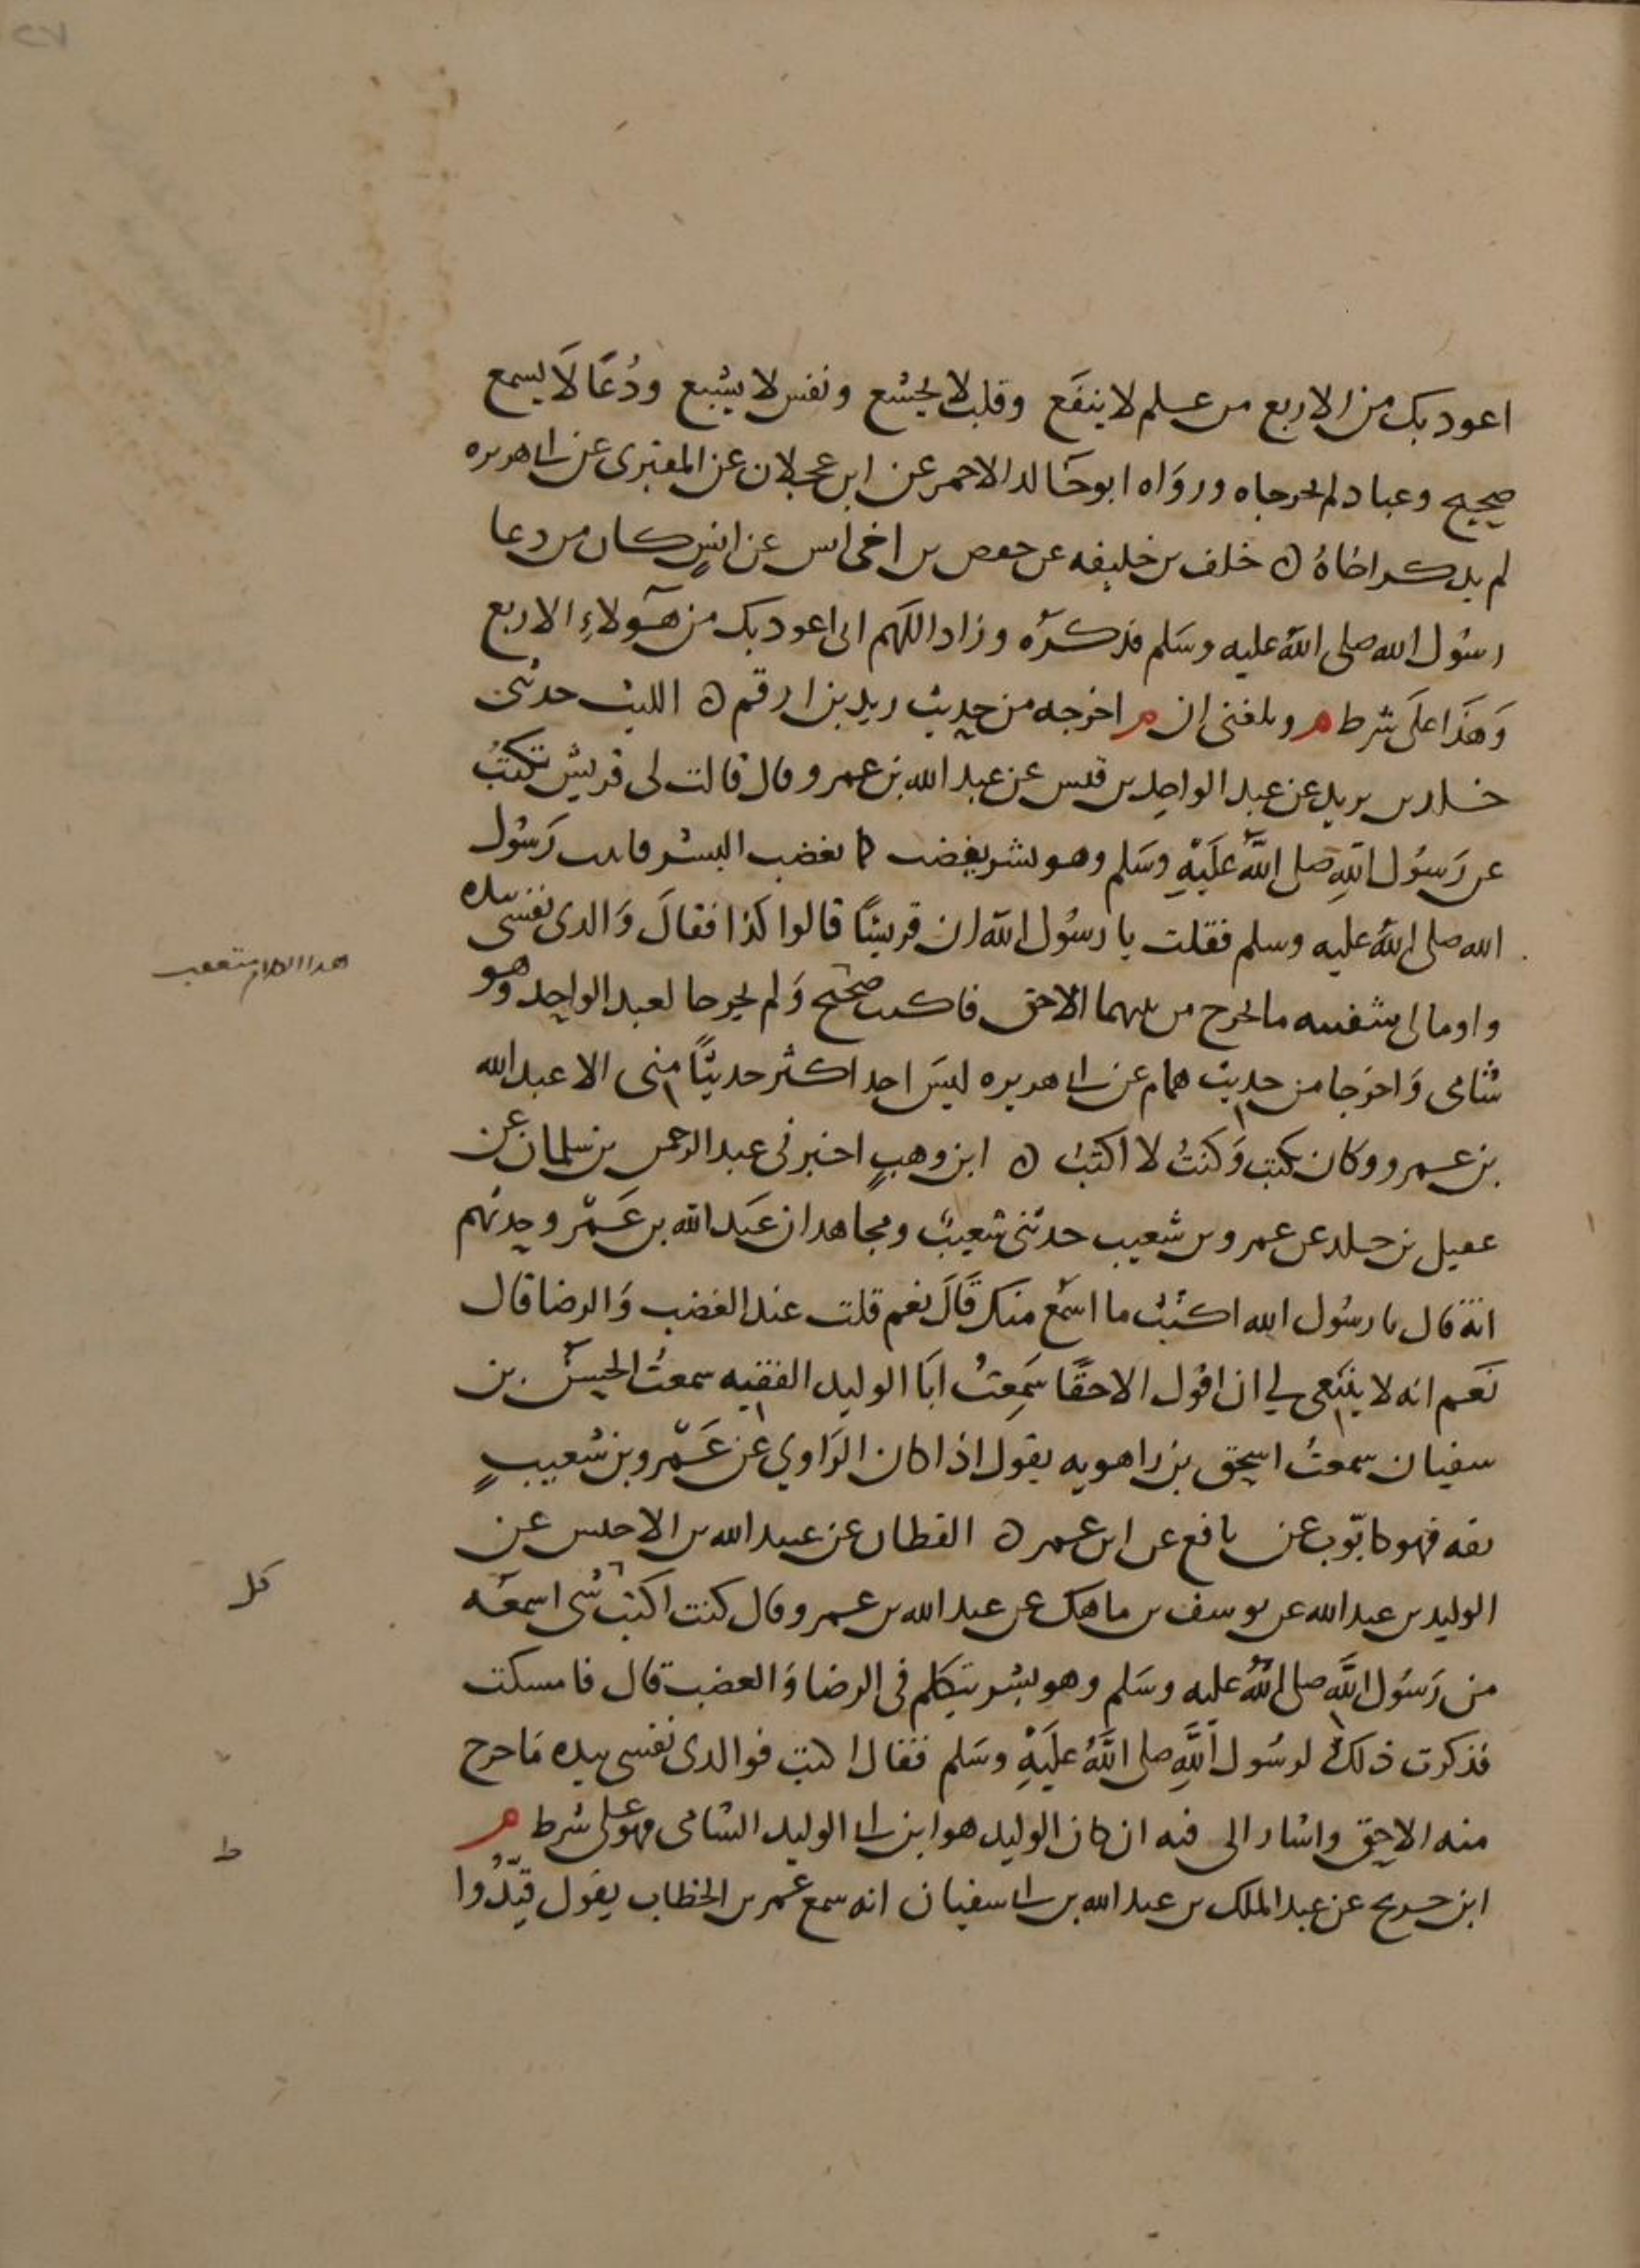 اعوذ بك من الاربع من علم لا ينفَع وقلب لا يخشع ونفس لا يشبع ودُعَا لَا يسمع
صحيح وعباد لم يخرجاه ورَوَاه ابو خَالد الاحمر عن ابن عجلان عن المقبرى عن ابى هريره
لم يذكر اخاهُ ه خلف بن خليفه عن حفص بن اخى انس عن انسٍ كان من دعا
رسُول الله صلى اللهُ عليه وسَلم فذكرَه وزاد اللَهم انى اعوذ بك من هَؤلاءِ الاربع
وَهَذَا علَى شرط م وبلغنى ان م اخرجه من حديث زيد بن ارقم ه الليث حدثنى
خالد بن يزيد عن عبد الواحد بن قيس عن عبد الله بن عمرو قال قالت لى قريش تكتبُ
عن رَسُول اللهِ صلى اللهُ عَلَيْهِ وسَلم وهو بشر يغضب كما يغضب البشر فاتيت رَسُول
الله صلى اللهُ عليه وسلم فقلت يا رسُول الله ان قريشًا قالوا كذا فقالَ وَالذى نفسى بيده
واوما الى شفتيه ما يخرج من بينهما الا حق فاكتب صَحيح وَلم يخرجا لعبد الواحد وهو
شامى وَاخرَجا من حديث همام عن ابى هريره ليسَ احد اكثر حديثًا منى الا عبد الله
بن عمرو وكان يكتب وَكنتُ لا اكتب ه ابن وهبٍ اخبرنى عبد الرحمن بن سلمان عن
عقيل بن خالد عن عمرو بن شعيب حدثنى شعيبٌ ومجاهد ان عَبد الله بن عَمْرو حدثهم
انهَ قال يا رسُول الله اكتبُ ما اسمَع منك قَالَ نعم قلت عند الغضب وَالرضا قال
نَعَم انه لا ينبَغى لي ان اقول الا حقًا سَمِعتُ ابَا الوليد الفقيه سمعتُ الحسنَ بن
سفيان سمعتُ اسحق بن راهويه يقول اذا كان الرَاوي عن عَمْرو بن شعيبٍ
ثقه فهو كايّوب عن نافع عن ابن عمر ه القطان عن عبيد الله بن الاخنس عن
الوليد بن عبد الله عن يوسف بن ماهك عن عبد الله بن عمرو قال كنت اكتب شى اسمعَه
كل
من رَسُول اللَّه صلى اللهُ عليه وسَلم وهو بشر يتكلم فى الرضا وَالغضب قال فامسكت
فذكرت ذلك لرسُول اللَّهِ صلى اللَّهُ علَيْهِ وسَلم فقال اكتب فوالذى نفسى بيده مَا خرج
منه الا حق واشار الى فيه ان كان الوليد هو ابن ابى الوليد الشامى فهو على شرط م
ط
ابن جريج عن عبد الملك بن عبد الله بن ابى سفيان انه سمع عُمر بن الخطاب يقول قيّدُوا